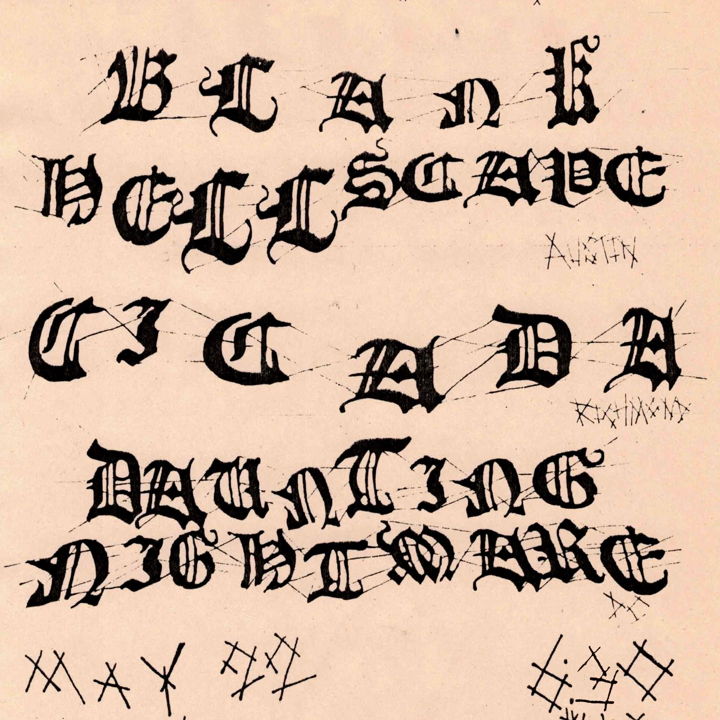 BLANK
HELLSCAPE
AUSTIN
CICADA
RICHMOND
DAUNTING
NIGHTMARE
DC
MAY 22 6:30